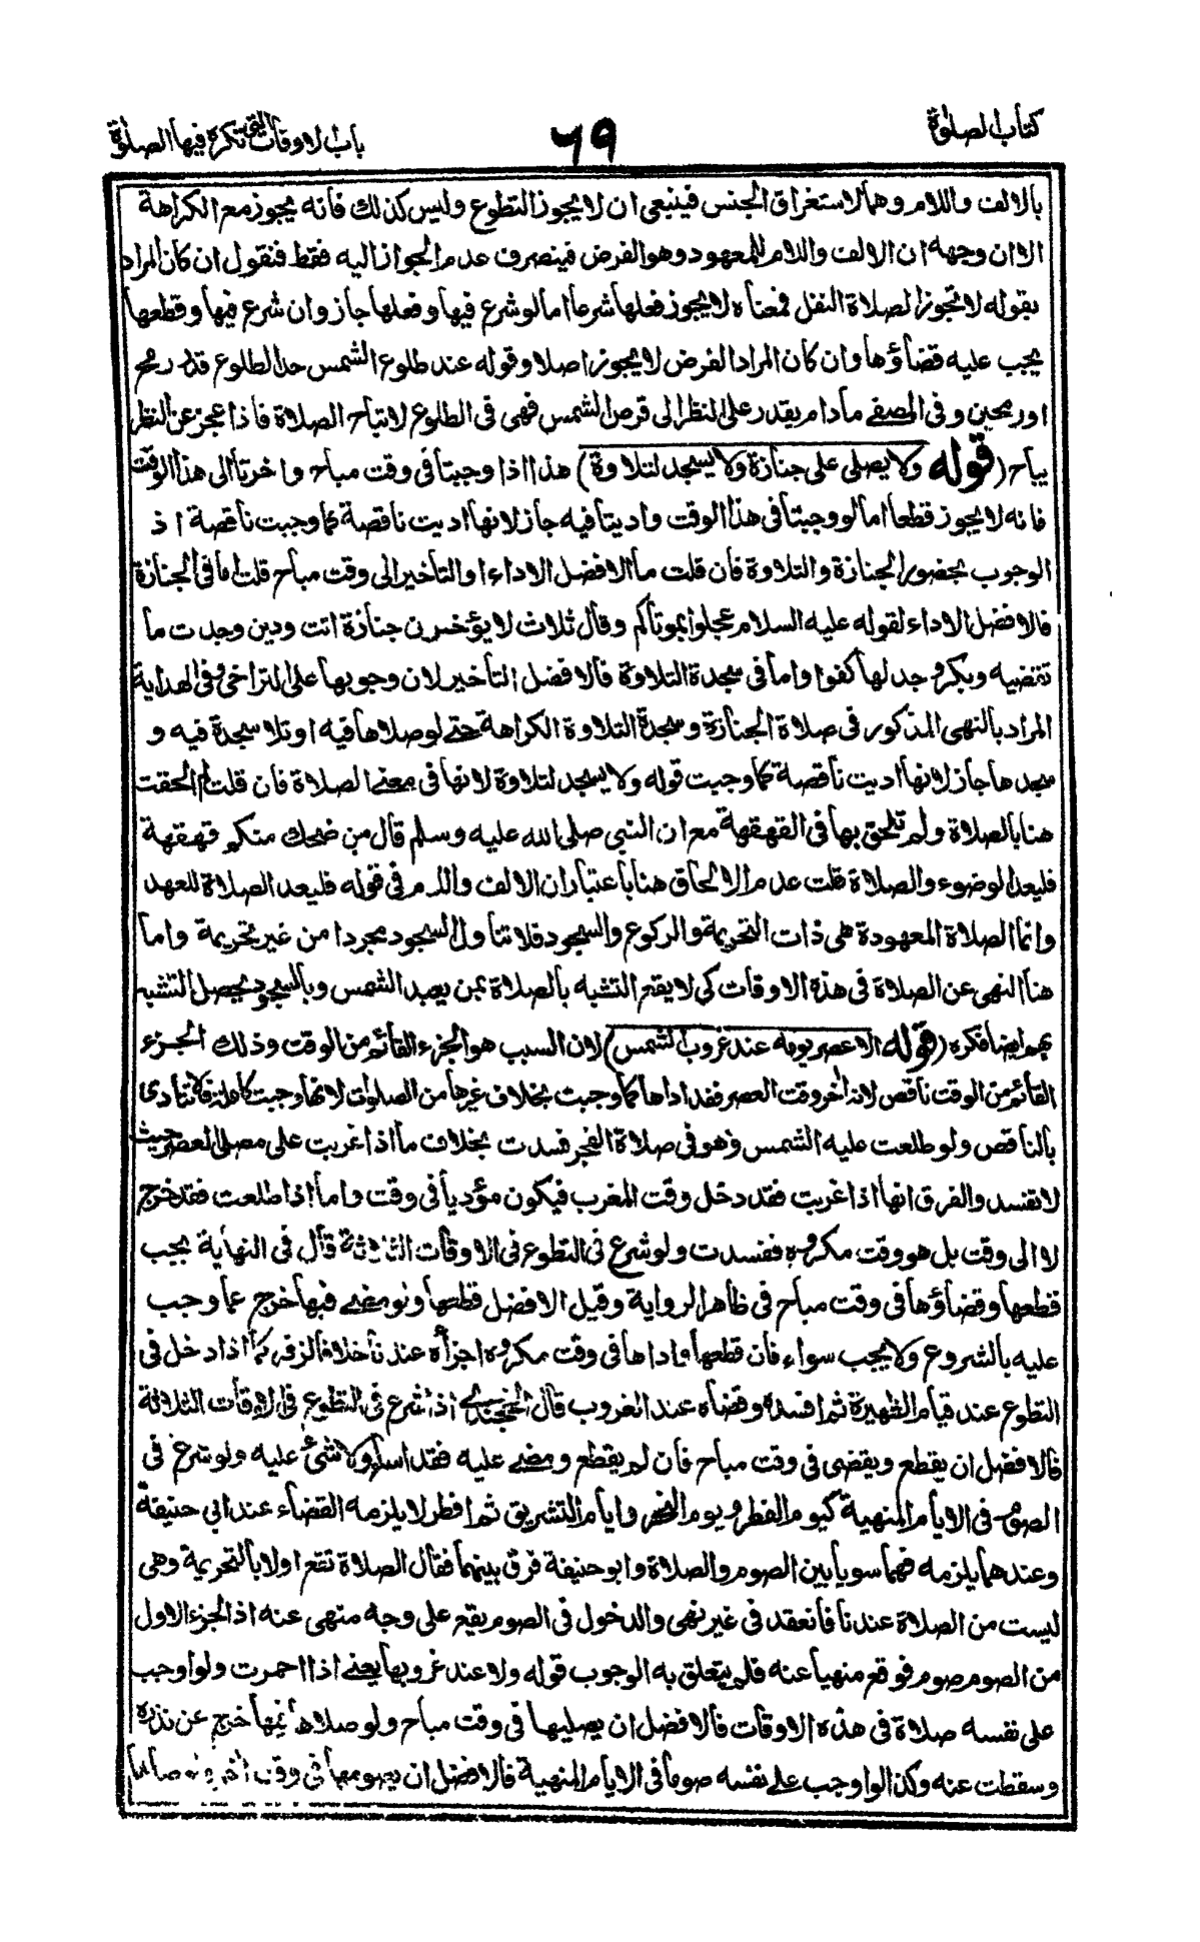 كتاب الصلوة
٦٩
باب الاوقات التى تكره فيها الصلوة
بالالف واللام وهما لاستغراق الجنس فينبغى ان لا يجوز التطوع وليس كذلك فانه يجوز مع الكراهة
الا ان وجهه ان الالف واللام للمعهود وهو الفرض فينصرف عدم الجواز اليه فقط فنقول ان كان المراد
بقوله لا تجوز الصلاة النفل فمعناه لا يجوز فعلها شرعا اما لو شرع فيها وفعلها جاز وان شرع فيها وقطعها
يجب عليه قضاؤها وان كان المراد الفرض لا يجوز اصلا وقوله عند طلوع الشمس حد الطلوع قدر رمح
او رمحين وفى المصفى ما دام يقدر على النظر الى قرص الشمس فهى فى الطلوع لا تباح الصلاة فاذا عجز عن النظر
يباح (قوله ولا يصلى على جنازة ولا يسجد لتلاوة) هذا اذا وجبتا فى وقت مباح واخرتا الى هذا الوقت
فانه لا يجوز قطعا اما لو وجبتا فى هذا الوقت واديتا فيه جاز لانها اديت ناقصة كما وجبت ناقصة اذ
الوجوب بحضور الجنازة والتلاوة فان قلت ما الافضل الاداء او التاخير الى وقت مباح قلت اما فى الجنازة
فالافضل الاداء لقوله عليه السلام عجلوا بموتاكم وقال ثلاث لا يؤخرن جنازة اتت ودين وجدت ما
تقضيه وبكر وجد لها كفوا واما فى سجدة التلاوة فالافضل التأخير لان وجوبها على التراخى وفى الهداية
المراد بالنهى المذكور فى صلاة الجنازة وسجدة التلاوة الكراهة حتى لو صلاها فيه او تلا سجدة فيه و
سجدها جاز لانها اديت ناقصة كما وجبت قوله ولا يسجد لتلاوة لانها فى معنى الصلاة فان قلت لم الحقت
هنا بالصلاة ولم تلحق بها فى القهقهة مع ان النبى صلى الله عليه وسلم قال من ضحك منكم قهقهة
فليعد الوضوء والصلاة قلت عدم الالحاق هنا باعتبار ان الالف واللام فى قوله فليعد الصلاة للعهد
وانما الصلاة المعهودة هى ذات التحريمة والركوع والسجود فلا تتأول السجود مجردا من غير تحريمة واما
هنا النهى عن الصلاة فى هذه الاوقات كى لا يقع التشبه بالصلاة بمن يعبد الشمس وبالسجود يحصل التشبه
بهم ايضا فكره (قوله الا عصر يومه عند غروب الشمس) لان السبب هو الجزء القائم من الوقت وذلك الجزء
القائم من الوقت ناقص لانه اخر وقت العصر فقد اداها كما وجبت بخلاف غيرها من الصلوات لانها وجبت كاملة فلا تتأدى
بالناقص ولو طلعت عليه الشمس وهو فى صلاة الفجر فسدت بخلاف ما اذا غربت على مصلى العصر حيث
لا تفسد والفرق انها اذا غربت فقد دخل وقت المغرب فيكون مؤديا فى وقت واما اذا طلعت فقد خرج
لا الى وقت بل هو وقت مكروه ففسدت ولو شرع فى التطوع فى الاوقات الثلاثة قال فى النهاية يجب
قطعها وقضاؤها فى وقت مباح فى ظاهر الرواية وقيل الافضل قطعها ولو مضى فيها خرج عما وجب
عليه بالشروع ولا يجب سواء فان قطعها واداها فى وقت مكروه اجزأه عندنا خلافا لزفر كما اذا دخل فى
التطوع عند قيام الظهيرة ثم افسده وقضاه عند الغروب قال الخجندى اذا شرع فى التطوع فى الاوقات الثلاثة
فالافضل ان يقطع ويقضى فى وقت مباح فان لم يقطع ومضى عليه فقد اساء ولا شئ عليه ولو شرع فى
الصوم فى الايام المنهية كيوم الفطر ويوم النحر وايام التشريق ثم افطر لا يلزمه القضاء عند ابى حنيفة
وعندهما يلزمه فهما سويا بين الصوم والصلاة وابو حنيفة فرق بينهما فقال الصلاة تقع اولا بالتحريمة وهى
ليست من الصلاة عندنا فانعقد فى غير نهى والدخول فى الصوم يقع على وجه منهى عنه اذ الجزء الاول
من الصوم صوم فوقع منهيا عنه فلم يتعلق به الوجوب قوله ولا عند غروبها يعنى اذا احمرت ولو اوجب
على نفسه صلاة فى هذه الاوقات فالافضل ان يصليها فى وقت مباح ولو صلاها فيها خرج عن نذره
وسقطت عنه وكذا لو اوجب على نفسه صوما فى الايام المنهية فالافضل ان يصومها فى وقت